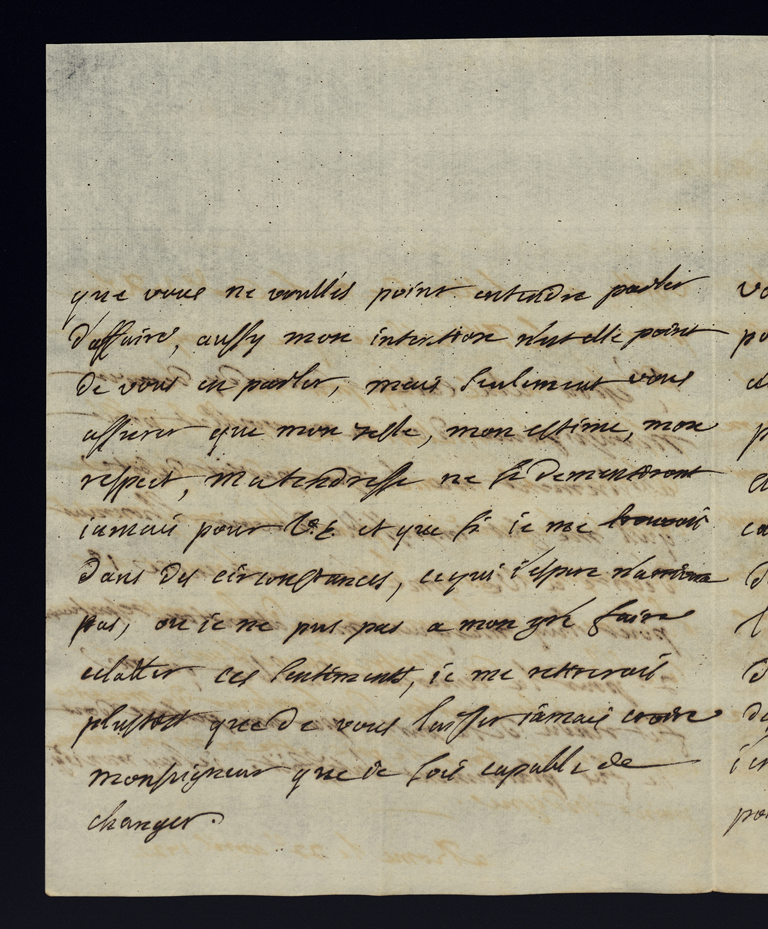 que vous ne voullés point entendre parler
d'affaire, aussy mon intention n'est elle point
de vous en parler, mais seulement vous
assurer que mon zelle, mon estime, mon
respect, ma tendresse ne se dementiront
iamais pour V.E. et que si ie me trouvois
dans des circonstances, ce qui i'espere n'arrivera
pas, ou ie ne pus pas a mon gré faire
eclatter ces sentiments, ie me retirerois
plustost que de vous laisser iamais croire
monseigneur que ie sois capable de
changer.